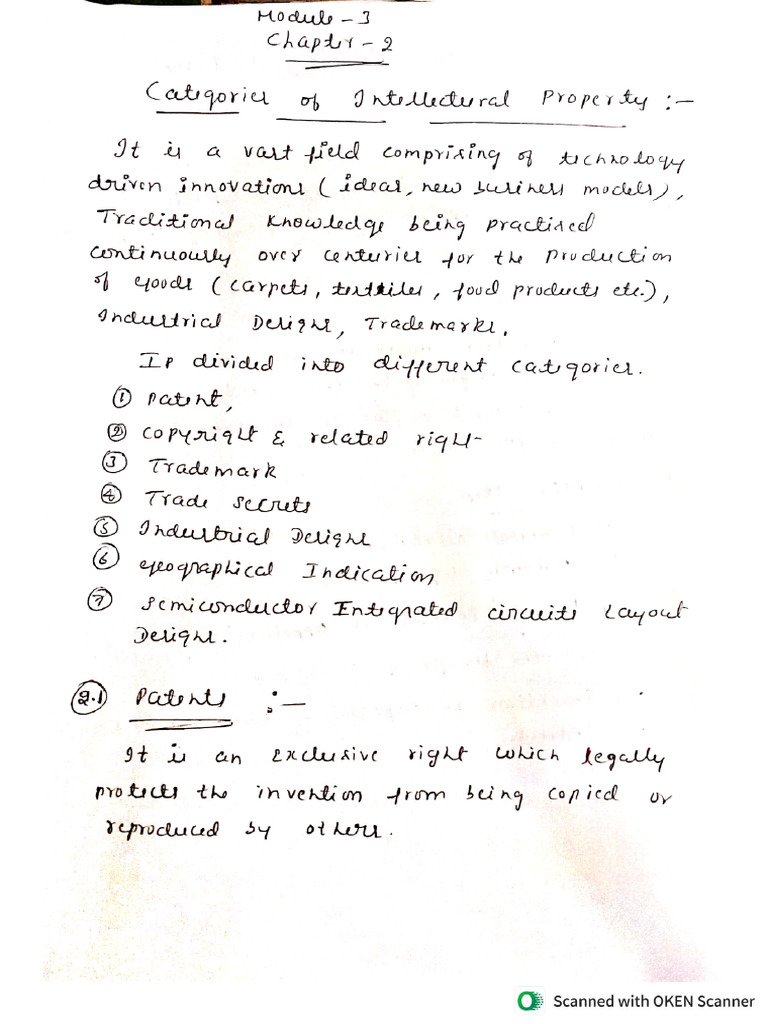 Module - 3
Chapter - 2
Categories of Intellectural Property :-
It is a vast field comprising of technology
driven innovations ( ideas, new business models),
Traditional Knowledge being practised
continuously over centuries for the production
of goods ( carpets, textiles, food products etc.),
Industrial Designs, Trademarks.
IP divided into different categories.
① Patent,
② Copyright & related right
③ Trademark
④ Trade secrets
⑤ Industrial Designs
⑥ Geographical Indication
⑦ Semiconductor Integrated circuits Layout
Designs.
2.1 Patents :-
It is an exclusive right which legally
protects the invention from being copied or
reproduced by others.
Scanned with OKEN Scanner